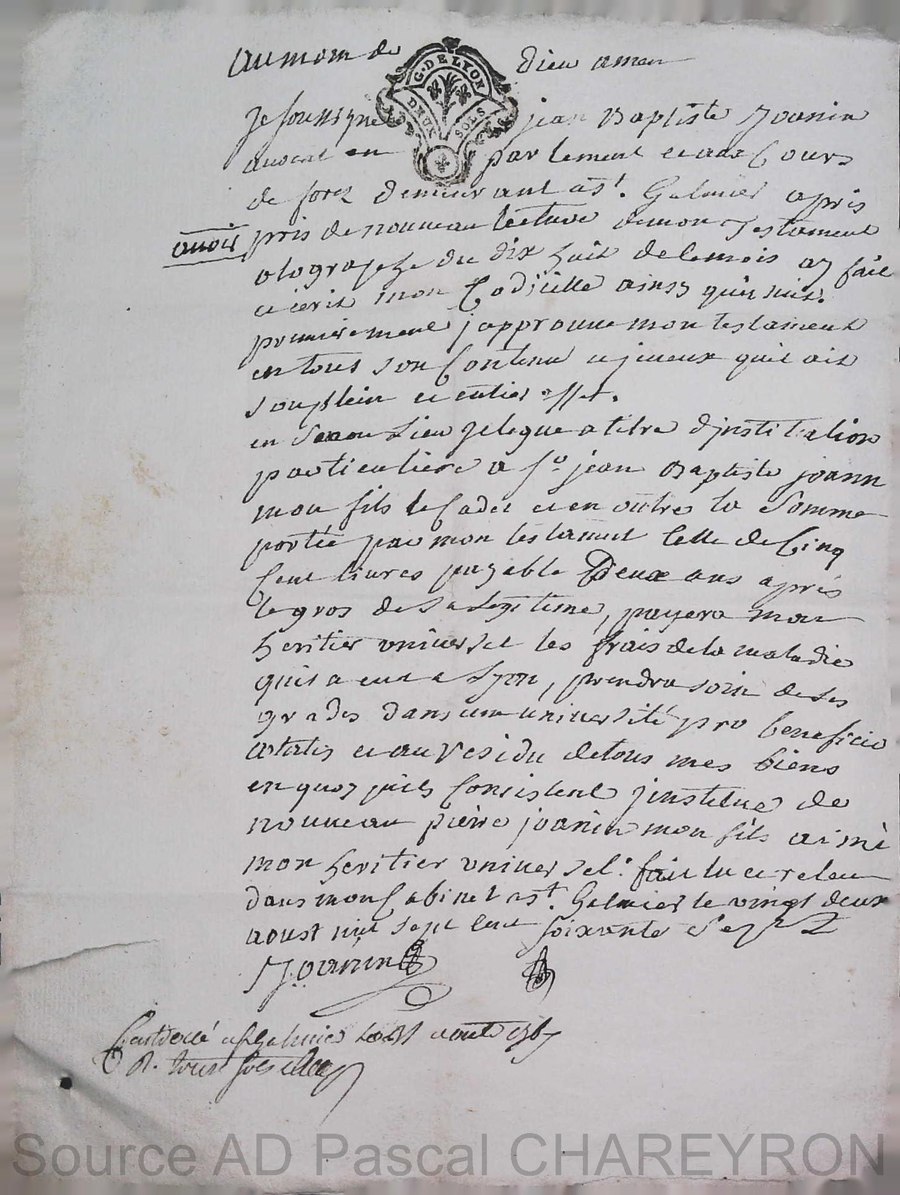 au nom de Dieu amen
G. DE LYON
DEUX SOLS
Je soussigné jean Baptiste Joanin
avocat en parlement et aux Cours
de forez demeurant a st. Galmier apres
avoir pris de nouveau lecture de mon testament
olographe du dix huit de ce mois ay fait
et ecrit mon Codicille ainsy quil suit.
premierement j'approuve mon testament
en tous son Contenu et je veux quil ait
son plein et entier effet.
en Second Lieu je legue a titre d'jnstitution
particuliere a sr. jean Baptiste joanin
mon fils le Cadet et en outres la Somme
portée par mon testament Celle de Cinq
Cent livres payable Deux ans apres
le gros de sa legitime, payera mon
heritier universel les frais de la maladie
quil a eut a Lyon, prendra soin de ses
grades dans une université pro beneficio
ætatis et au residu de tous mes biens
en quoy quils Consistent j'institue de
nouveau pierre joanin mon fils aimé
mon heritier universel. fait lu et releu
dans mon Cabinet a st. Galmier le vingt deux
aoust mil sept cent soixante sept
Joanin
Controllé a St Galmier le aoust 1767
R.
Source AD Pascal CHAREYRON